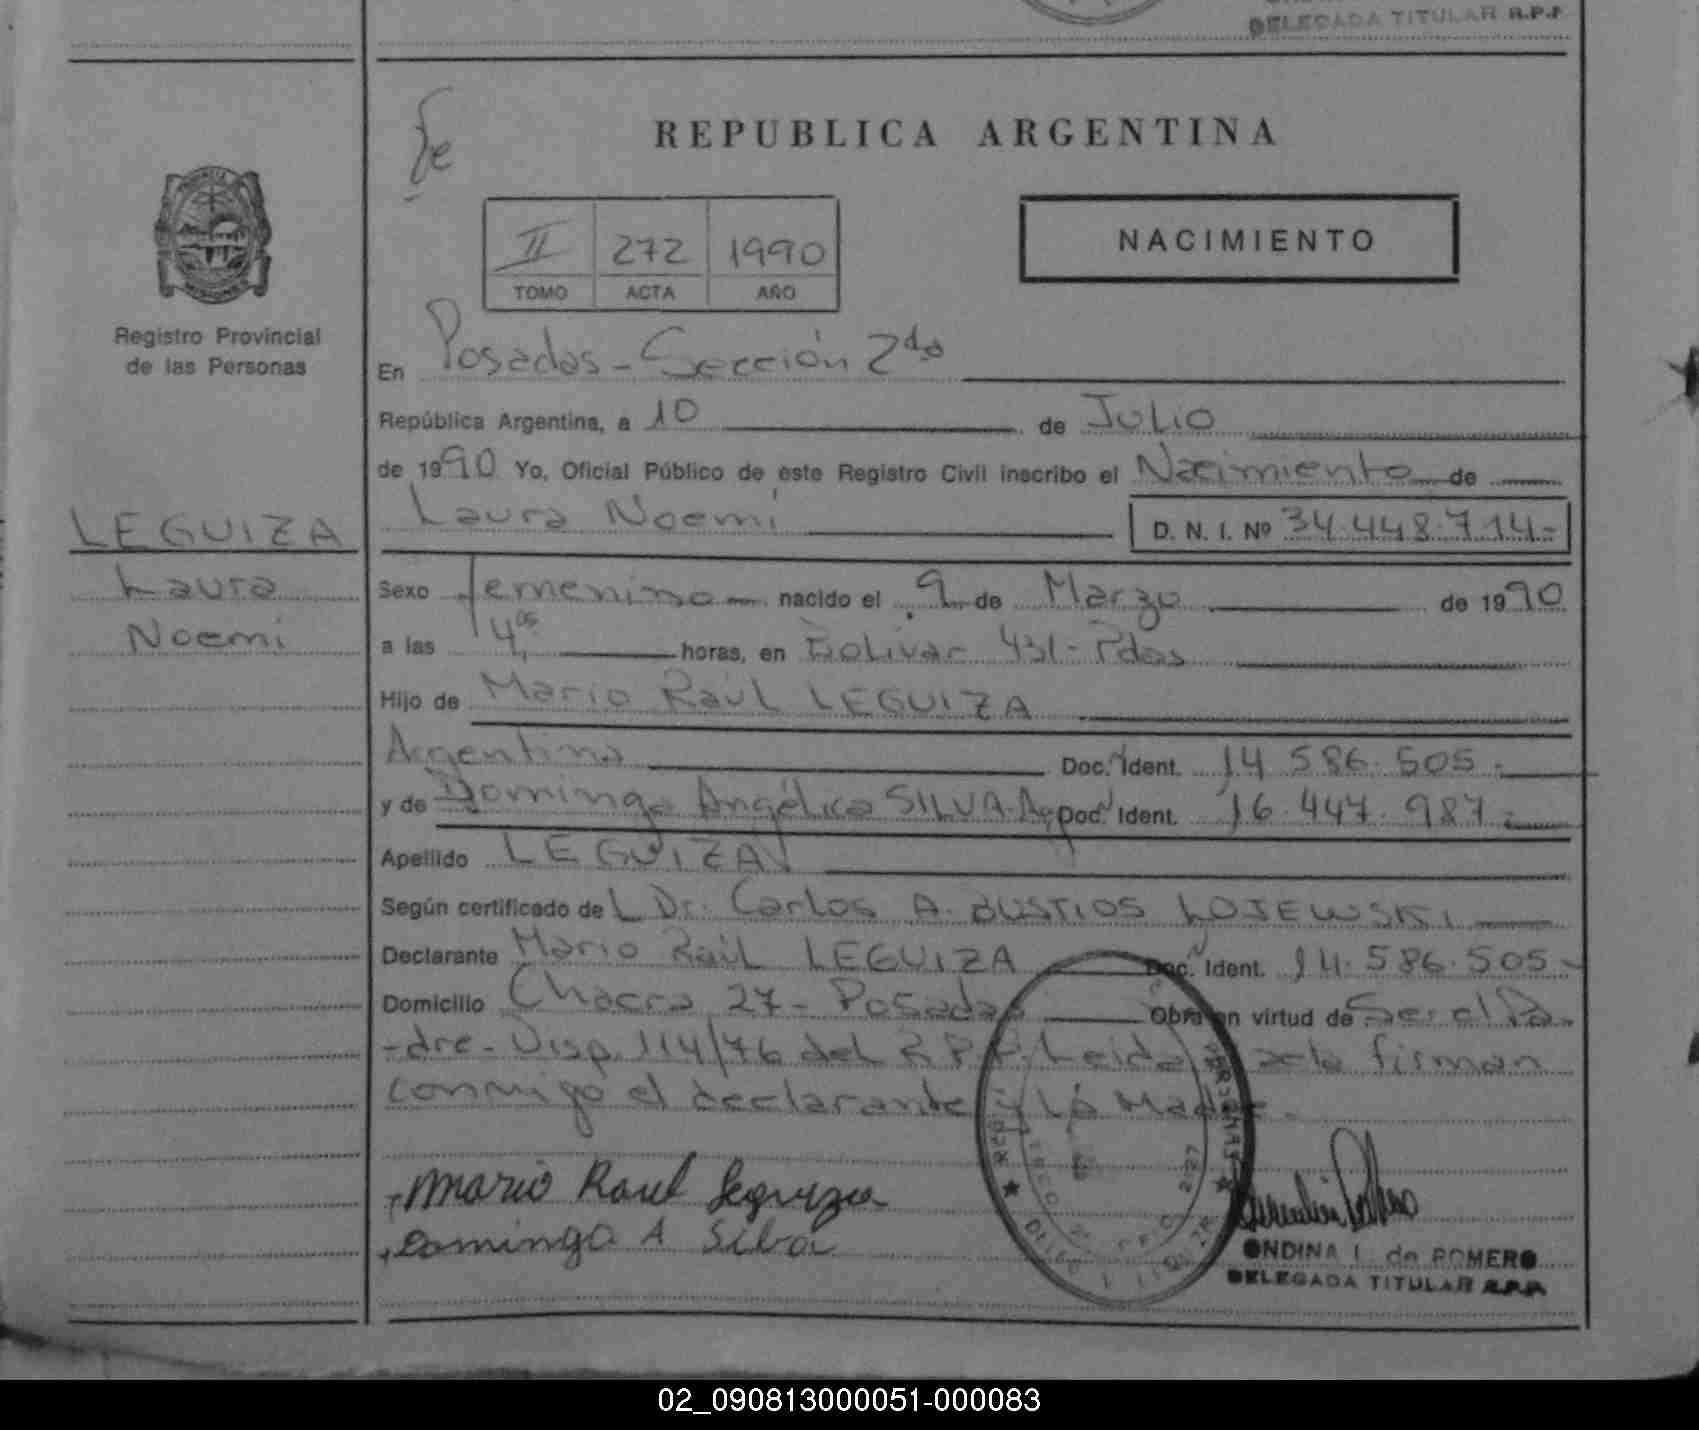 DELEGADA TITULAR R.P.P.
REPUBLICA ARGENTINA
II 272 1990
TOMO ACTA AÑO
NACIMIENTO
Registro Provincial
de las Personas
En Posadas - Sección 2da
República Argentina, a 10 de Julio
de 1990 Yo, Oficial Público de este Registro Civil inscribo el Nacimiento de
LEGUIZA
Laura
Noemi
Laura Noemi D. N. I. Nº 34.448.714.-
Sexo femenino nacido el 9 de Marzo de 1990
a las 4,05 horas, en Bolivar 431 - Pdas
Hijo de Mario Raúl LEGUIZA
Argentino Doc. Ident. 14.586.505.-
y de Dominga Angélica SILVA. Arg Doc. Ident. 16.447.987.-
Apellido LEGUIZA
Según certificado de L Dr. Carlos A. BUSTIOS LOJEWSKI
Declarante Mario Raúl LEGUIZA Doc. Ident. 14.586.505-
Domicilio Chacra 27 - Posadas Obra en virtud de Ser el Pa-
-dre - Disp. 114/76 del R.P.P. Leida el acta firman
conmigo el declarante y La Madre.
Mario Raul Leguiza
Dominga A Silva
ONDINA I. de ROMERO
DELEGADA TITULAR R.P.P.
02_090813000051-000083